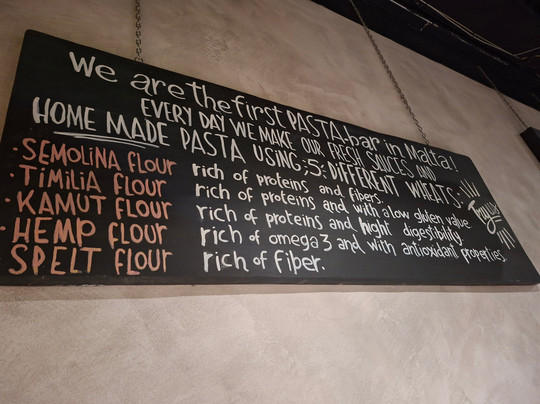 We are the first PASTA bar in Malta!
EVERY DAY WE MAKE OUR FRESH SAUCES AND
HOME MADE PASTA USING ;5; DIFFERENT WHEATS:
· SEMOLINA flour rich of proteins and fibers.
· TIMILIA flour rich of proteins and with a low gluten value
· KAMUT flour rich of proteins and hight digestibility.
· HEMP flour rich of omega 3 and with antioxidant properties.
SPELT flour rich of fiber.